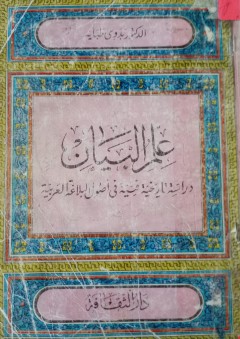 الدكتور بدوى طبانه
علم البيان
دراسة تاريخية فنية فى أصول البلاغة العربية
دار الثقافة